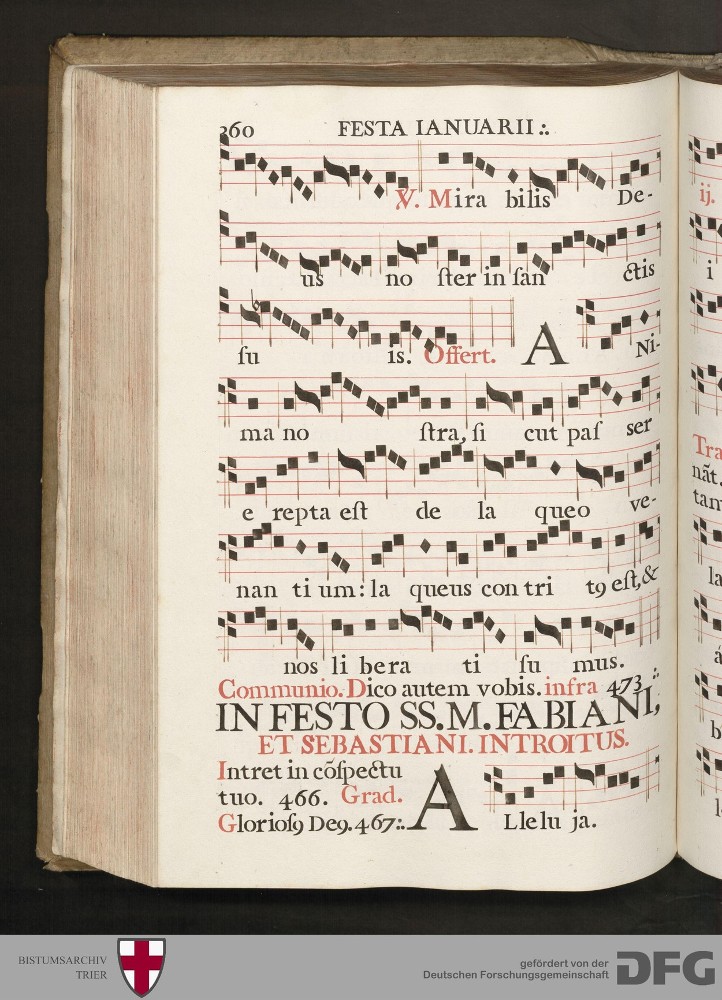 360 FESTA IANUARII :.
V. Mira bilis De-
us no ſter in ſan ctis
ſu is. Offert. A Ni-
ma no ſtra, ſi cut paſ ser
e repta eſt de la queo ve-
nan ti um: la queus con tri t9 eſt, &
nos li bera ti ſu mus.
Communio. Dico autem vobis. infra 473 :.
IN FESTO SS. M. FABIANI,
ET SEBASTIANI. INTROITUS.
Intret in cõſpectu
tuo. 466. Grad.
Glorioſ9 De9. 467:. A Lle lu ja.
ij.
i
Tra
nãt.
tam
la
á
b
BISTUMSARCHIV
TRIER
gefördert von der
Deutschen Forschungsgemeinschaft
DFG